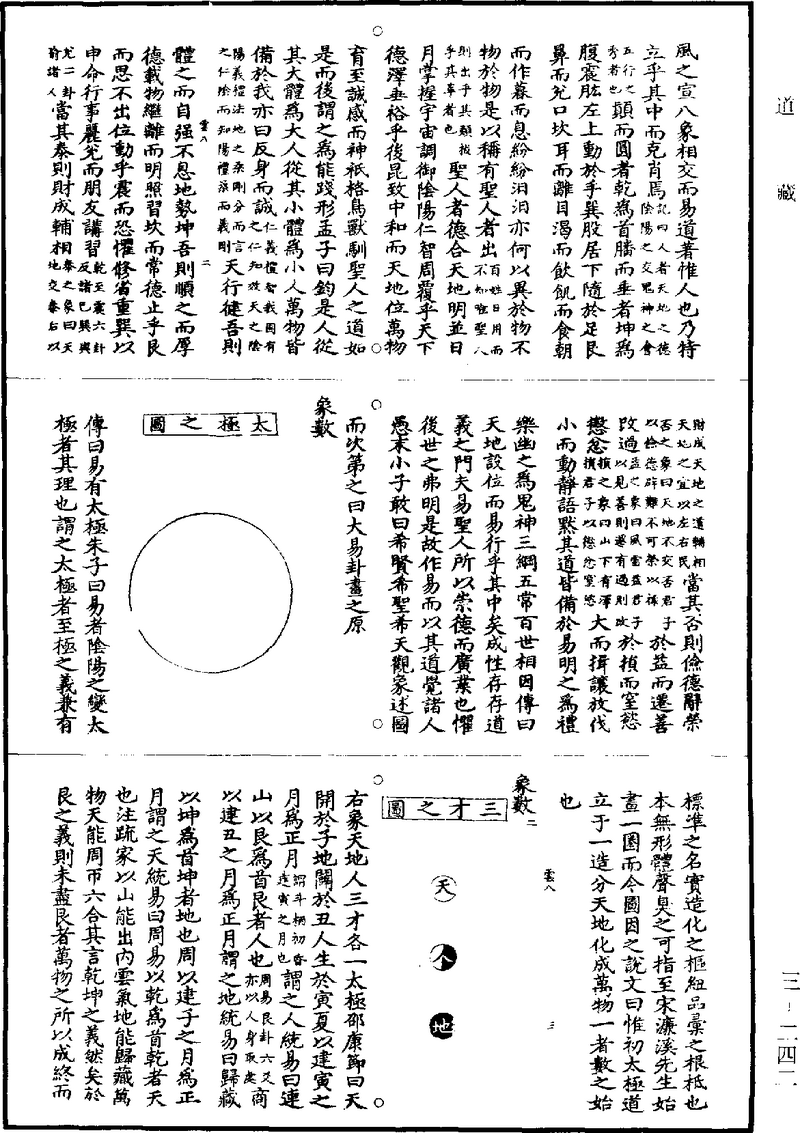 道藏
風之宣八象相交而易道著惟人也乃特
立乎其中而克肖焉記曰人者天地之德陰陽之交鬼神之會
五行之秀者也顛而圓者乾為首膰而垂者坤為
腹震肱左上動於手巽股居下隨於足艮
鼻而兌口坎耳而離目渴而飲飢而食朝
而作暮而息紛紛汨汨亦何以異於物不
物於物是以稱有聖人者出百姓日用而不知唯聖人
則出乎其類拔乎其萃者也聖人者德合天地明並日
月掌握宇宙調御陰陽仁智周覆乎天下
德澤垂裕乎後昆致中和而天地位萬物
育至誠感而神祇格鳥獸馴聖人之道如
是而後謂之為能踐形孟子曰鈞是人從
其大體為大人從其小體為小人萬物皆
備於我亦曰反身而誠仁義禮智我固有之仁知效天之陰
陽義禮法地之柔剛分而言之仁陰而知陽禮柔而義剛天行健吾則
雲八 二
體之而自强不息地勢坤吾則順之而厚
德載物繼離而明照習坎而常德止乎艮
而思不出位動乎震而恐懼修省重巽以
申命行事麗兌而朋友講習乾至震六卦反諸己巽與
兌二卦諭諸人當其泰則財成輔相泰之象曰天地交泰后以
財成天地之道輔相天地之宜以左右民當其否則儉德辭榮
否之象曰天地不交否君子以儉德辟難不可榮以祿於益而遷善
改過益之象曰風雷益君子以見善則遷有過則改於損而窒慾
懲忿損之象曰山下有澤損君子以懲忿窒慾大而揖讓放伐
小而動靜語默其道皆備於易明之為禮
樂幽之為鬼神三綱五常百世相因傳曰
天地設位而易行乎其中矣成性存存道
義之門夫易聖人所以崇德而廣業也懼
後世之弗明是故作易而以其道覺諸人
愚末小子敢曰希賢希聖希天觀象述圖
而次第之曰大易卦畫之原
象數
太極之圖
傳曰易有太極朱子曰易者陰陽之變太
極者其理也謂之太極者至極之義兼有
標準之名實造化之樞紐品彙之根柢也
本無形體聲臭之可指至宋濂溪先生始
畫一圈而今圖因之說文曰惟初太極道
立于一造分天地化成萬物一者數之始
也
雲八 三
象數二
三才之圖
天
人
地
右象天地人三才各一太極邵康節曰天
開於子地闢於丑人生於寅夏以建寅之
月為正月謂斗柄初昏建寅之月也謂之人統易曰連
山以艮為首艮者人也周易艮卦六爻亦以人身取象商
以建丑之月為正月謂之地統易曰歸藏
以坤為首坤者地也周以建子之月為正
月謂之天統易曰周易以乾為首乾者天
也注疏家以山能出內雲氣地能歸藏萬
物天能周帀六合其言乾坤之義然矣於
艮之義則未盡艮者萬物之所以成終而
三-二四二